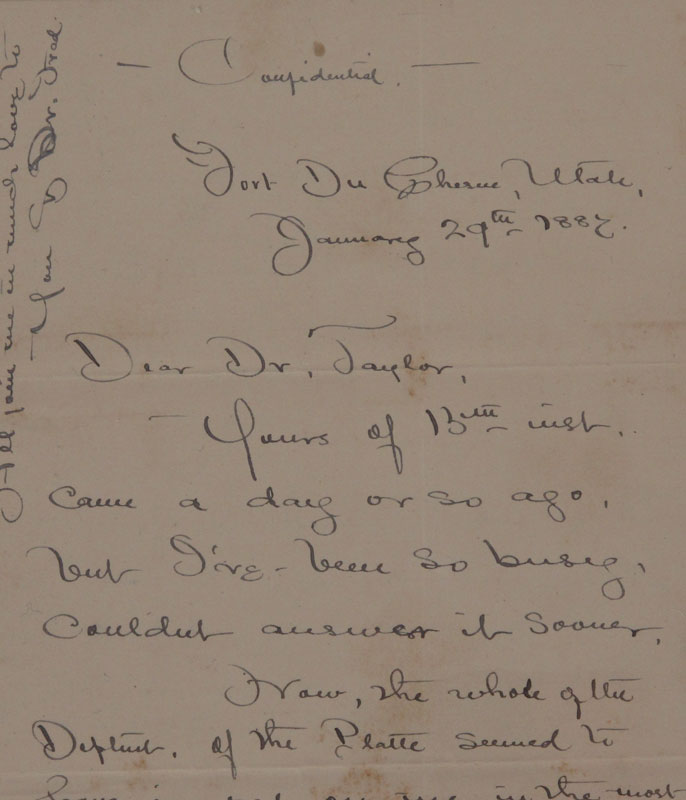 — Confidential. —
Fort Du Chesne, Utah,
January 29th 1887.
Dear Dr. Taylor,
— Yours of 13th inst.
came a day or so ago,
but I've been so busy,
couldn't answer it sooner.
Now, the whole of the
Deptmt. of the Platte seemed to
in the most
join me in much love to
You & Dr. Fred.